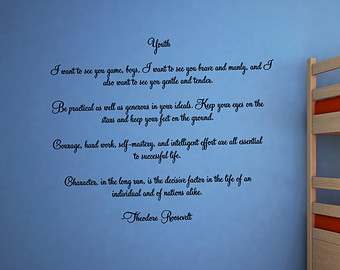 Youth
I want to see you game, boys, I want to see you brave and manly, and I
also want to see you gentle and tender.
Be practical as well as generous in your ideals. Keep your eyes on the
stars and keep your feet on the ground.
Courage, hard work, self-mastery, and intelligent effort are all essential
to successful life.
Character, in the long run, is the decisive factor in the life of an
individual and of nations alike.
-Theodore Roosevelt